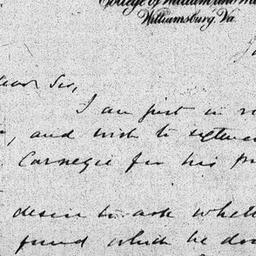 College of William and M
Williamsburg, Va.
Dear Sir,
I am just in re
, and wish to
Carnegie for his pr
desire to ask whethe
fund which he do